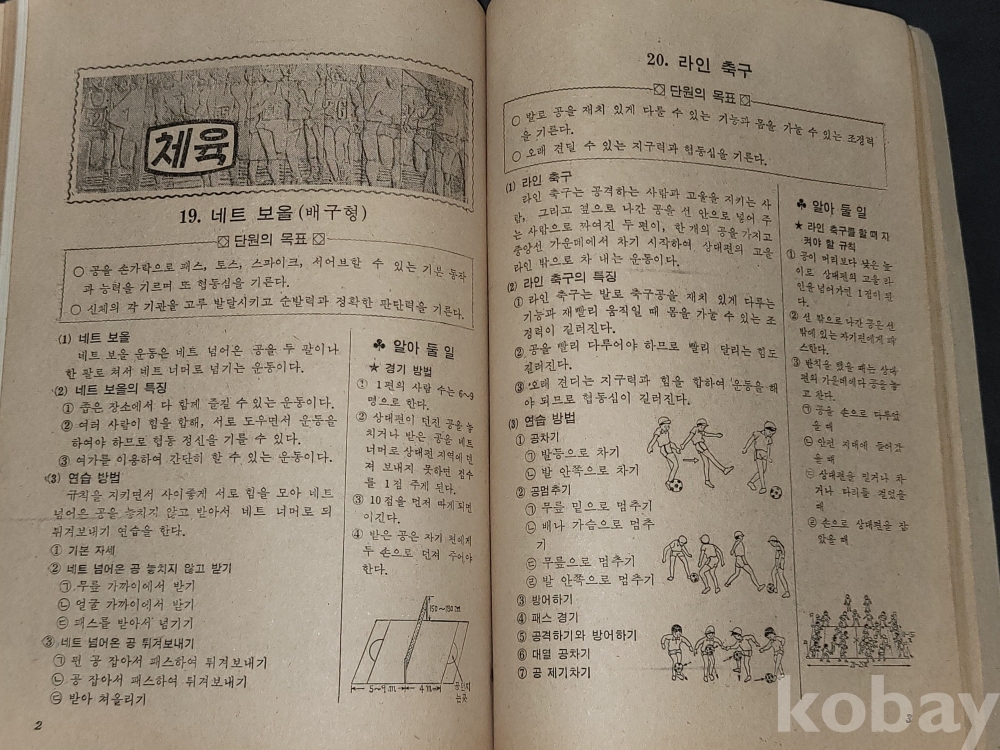 체육
19. 네트 보올(배구형)
단원의 목표
○ 공을 손가락으로 패스, 토스, 스파이크, 서어브할 수 있는 기본 동작
과 능력을 기르며 또 협동심을 기른다.
○ 신체의 각 기관을 고루 발달시키고 순발력과 정확한 판단력을 기른다.
(1) 네트 보올
네트 보올 운동은 네트 넘어온 공을 두 팔이나
한 팔로 쳐서 네트 너머로 넘기는 운동이다.
(2) 네트 보올의 특징
① 좁은 장소에서 다 함께 즐길 수 있는 운동이다.
② 여러 사람이 힘을 합해, 서로 도우면서 운동을
하여야 하므로 협동 정신을 기를 수 있다.
③ 여가를 이용하여 간단히 할 수 있는 운동이다.
(3) 연습 방법
규칙을 지키면서 사이좋게 서로 힘을 모아 네트
넘어온 공을 놓치지 않고 받아서 네트 너머로 되
튀겨보내기 연습을 한다.
① 기본 자세
② 네트 넘어온 공 놓치지 않고 받기
㉠ 무릎 가까이에서 받기
㉡ 얼굴 가까이에서 받기
㉢ 패스를 받아서 넘기기
③ 네트 넘어온 공 튀겨보내기
㉠ 뜬 공 잡아서 패스하여 튀겨보내기
㉡ 공 잡아서 패스하여 튀겨보내기
㉢ 받아 쳐올리기
♣ 알아 둘 일
★ 경기 방법
① 1편의 사람 수는 6~9
명으로 한다.
② 상대편이 던진 공을 놓
치거나 받은 공을 네트
너머로 상대편 지역에 던
져 보내지 못하면 점수
를 1점 주게 된다.
③ 10점을 먼저 따게 되면
이긴다.
④ 받은 공은 자기 편에게
두 손으로 던져 주어야
한다.
5~9m
4m
2
20. 라인 축구
단원의 목표
○ 발로 공을 재치 있게 다룰 수 있는 기능과 몸을 가눌 수 있는 조정력
을 기른다.
○ 오래 견딜 수 있는 지구력과 협동심을 기른다.
(1) 라인 축구
라인 축구는 공격하는 사람과 고울을 지키는 사
람, 그리고 옆으로 나간 공을 선 안으로 넣어 주
는 사람으로 짜여진 두 편이, 한 개의 공을 가지고
중앙선 가운데에서 차기 시작하여 상대편의 고울
라인 밖으로 차 내는 운동이다.
(2) 라인 축구의 특징
① 라인 축구는 발로 축구공을 재치 있게 다루는
기능과 재빨리 움직일 때 몸을 가눌 수 있는 조
정력이 길러진다.
② 공을 빨리 다루어야 하므로 빨리 달리는 힘도
길러진다.
③ 오래 견디는 지구력과 힘을 합하여 운동을 해
야 되므로 협동심이 길러진다.
(3) 연습 방법
① 공차기
㉠ 발등으로 차기
㉡ 발 안쪽으로 차기
② 공멈추기
㉠ 무릎 밑으로 멈추기
㉡ 배나 가슴으로 멈추
기
㉢ 무릎으로 멈추기
㉣ 발 안쪽으로 멈추기
③ 방어하기
④ 패스 경기
⑤ 공격하기와 방어하기
⑥ 대열 공차기
⑦ 공 제기차기
♣ 알아 둘 일
★ 라인 축구를 할 때 지
켜야 할 규칙
① 공이 머리보다 낮은 높
이로 상대편의 고울 라
인을 넘어가면 1점이 된
다.
② 선 밖으로 나간 공은 선
밖에 있는 자기편에게 패
스한다.
③ 반칙을 했을 때는 상대
편의 가운데에다 공을 놓
고 찬다.
㉠ 공을 손으로 다루었
을 때
㉡ 안전 지대에 들어갔
을 때
㉢ 상대편을 밀거나 차
거나 다리를 걸었을
때
㉣ 손으로 상대편을 잡
았을 때
3
kobay